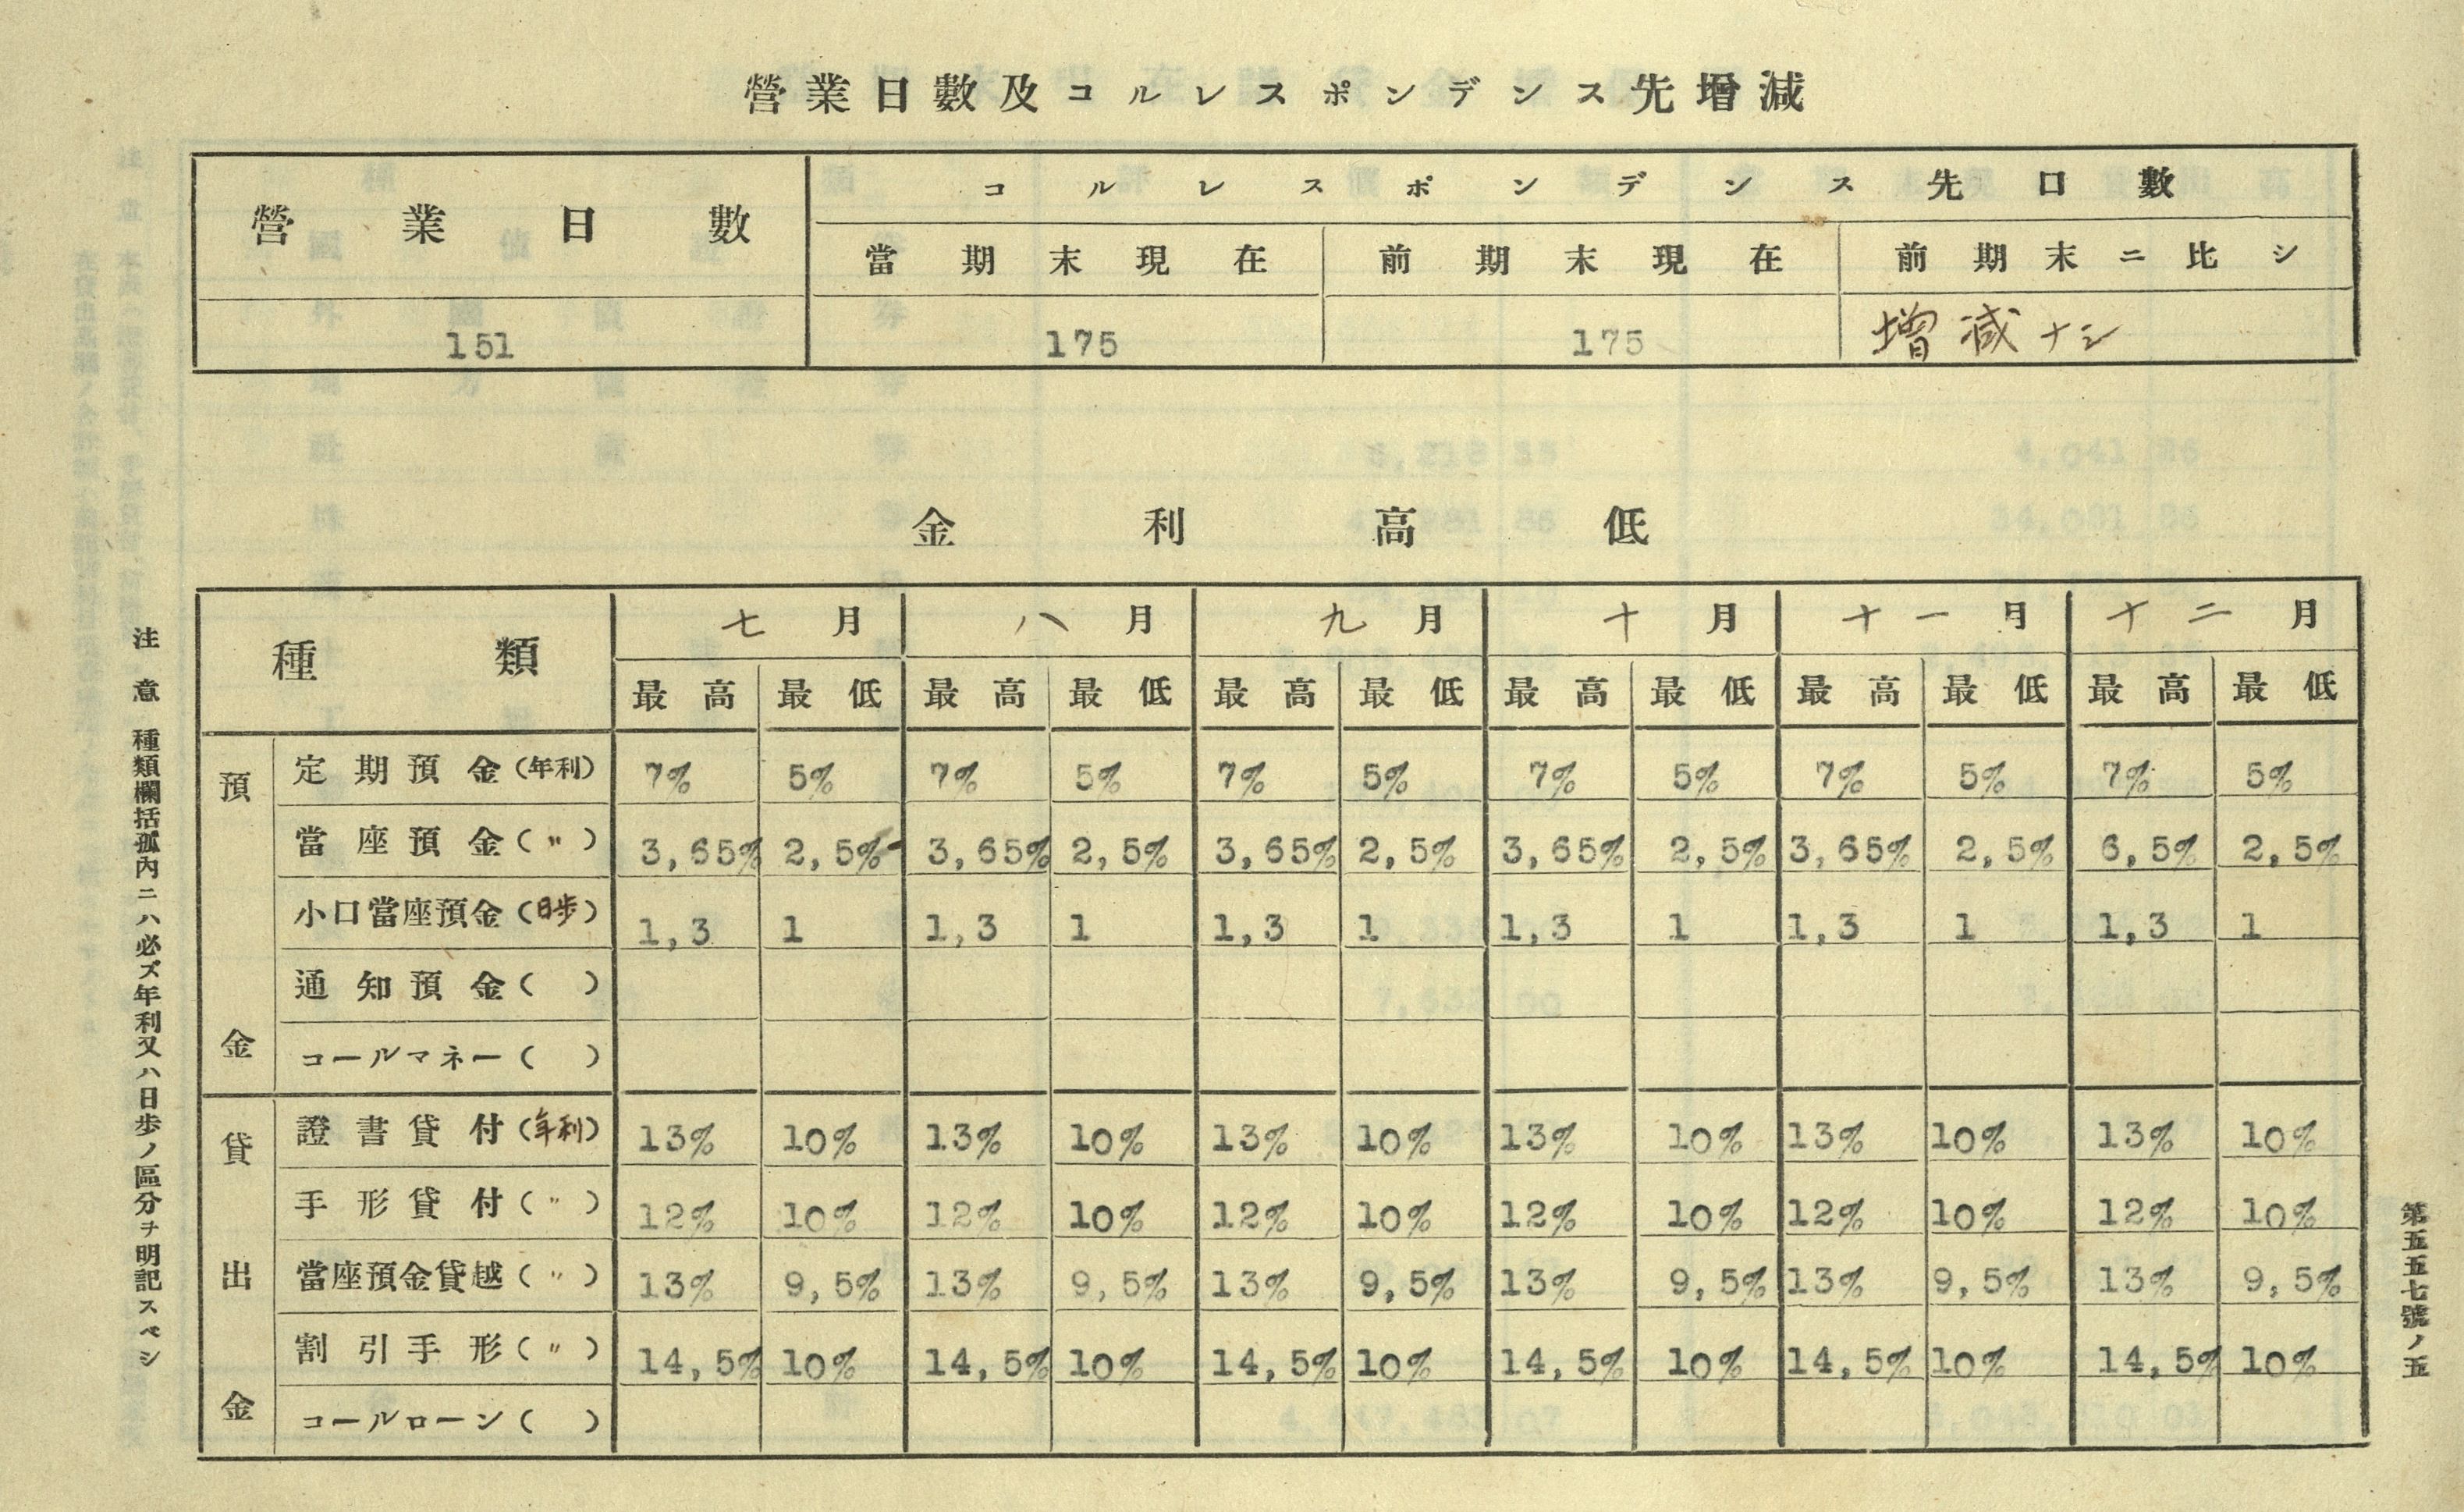 營業日數及コルレスポンデンス先增減
營業日數 コルレスポンデンス先口數
當期末現在 前期末現在 前期末ニ比シ
151 175 175 增減ナシ
金利高低
種類 七月 八月 九月 十月 十一月 十二月
最高 最低 最高 最低 最高 最低 最高 最低 最高 最低 最高 最低
預金
定期預金(年利) 7% 5% 7% 5% 7% 5% 7% 5% 7% 5% 7% 5%
當座預金(〃) 3,65% 2,5% 3,65% 2,5% 3,65% 2,5% 3,65% 2,5% 3,65% 2,5% 6,5% 2,5%
小口當座預金(日歩) 1,3 1 1,3 1 1,3 1 1,3 1 1,3 1 1,3 1
通知預金( )
コールマネー( )
貸出金
證書貸付(年利) 13% 10% 13% 10% 13% 10% 13% 10% 13% 10% 13% 10%
手形貸付(〃) 12% 10% 12% 10% 12% 10% 12% 10% 12% 10% 12% 10%
當座預金貸越(〃) 13% 9,5% 13% 9,5% 13% 9,5% 13% 9,5% 13% 9,5% 13% 9,5%
割引手形(〃) 14,5% 10% 14,5% 10% 14,5% 10% 14,5% 10% 14,5% 10% 14,5% 10%
コールローン( )
注意 種類欄括孤內ニハ必ズ年利又ハ日歩ノ區分ヲ明記スベシ
第五五七號ノ五